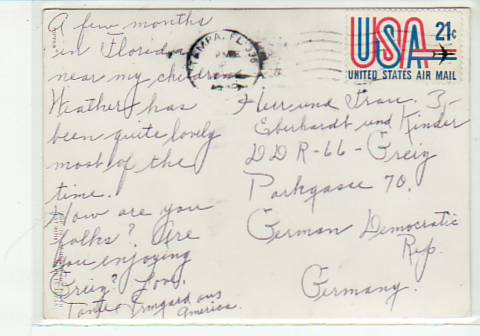 A few months
in Florida
near my children
Weather has
been quite lovely
most of the
time.
How are you
folks? Are
you enjoying
Greiz? Love,
Tante Irmgard aus
America.
TAMPA, FL 336
PM
USA 21c
UNITED STATES AIR MAIL
Herr und Frau
Eberhardt und Kinder
DDR-66-Greiz
Parkgasse 70.
German Democratic
Rep.
Germany.